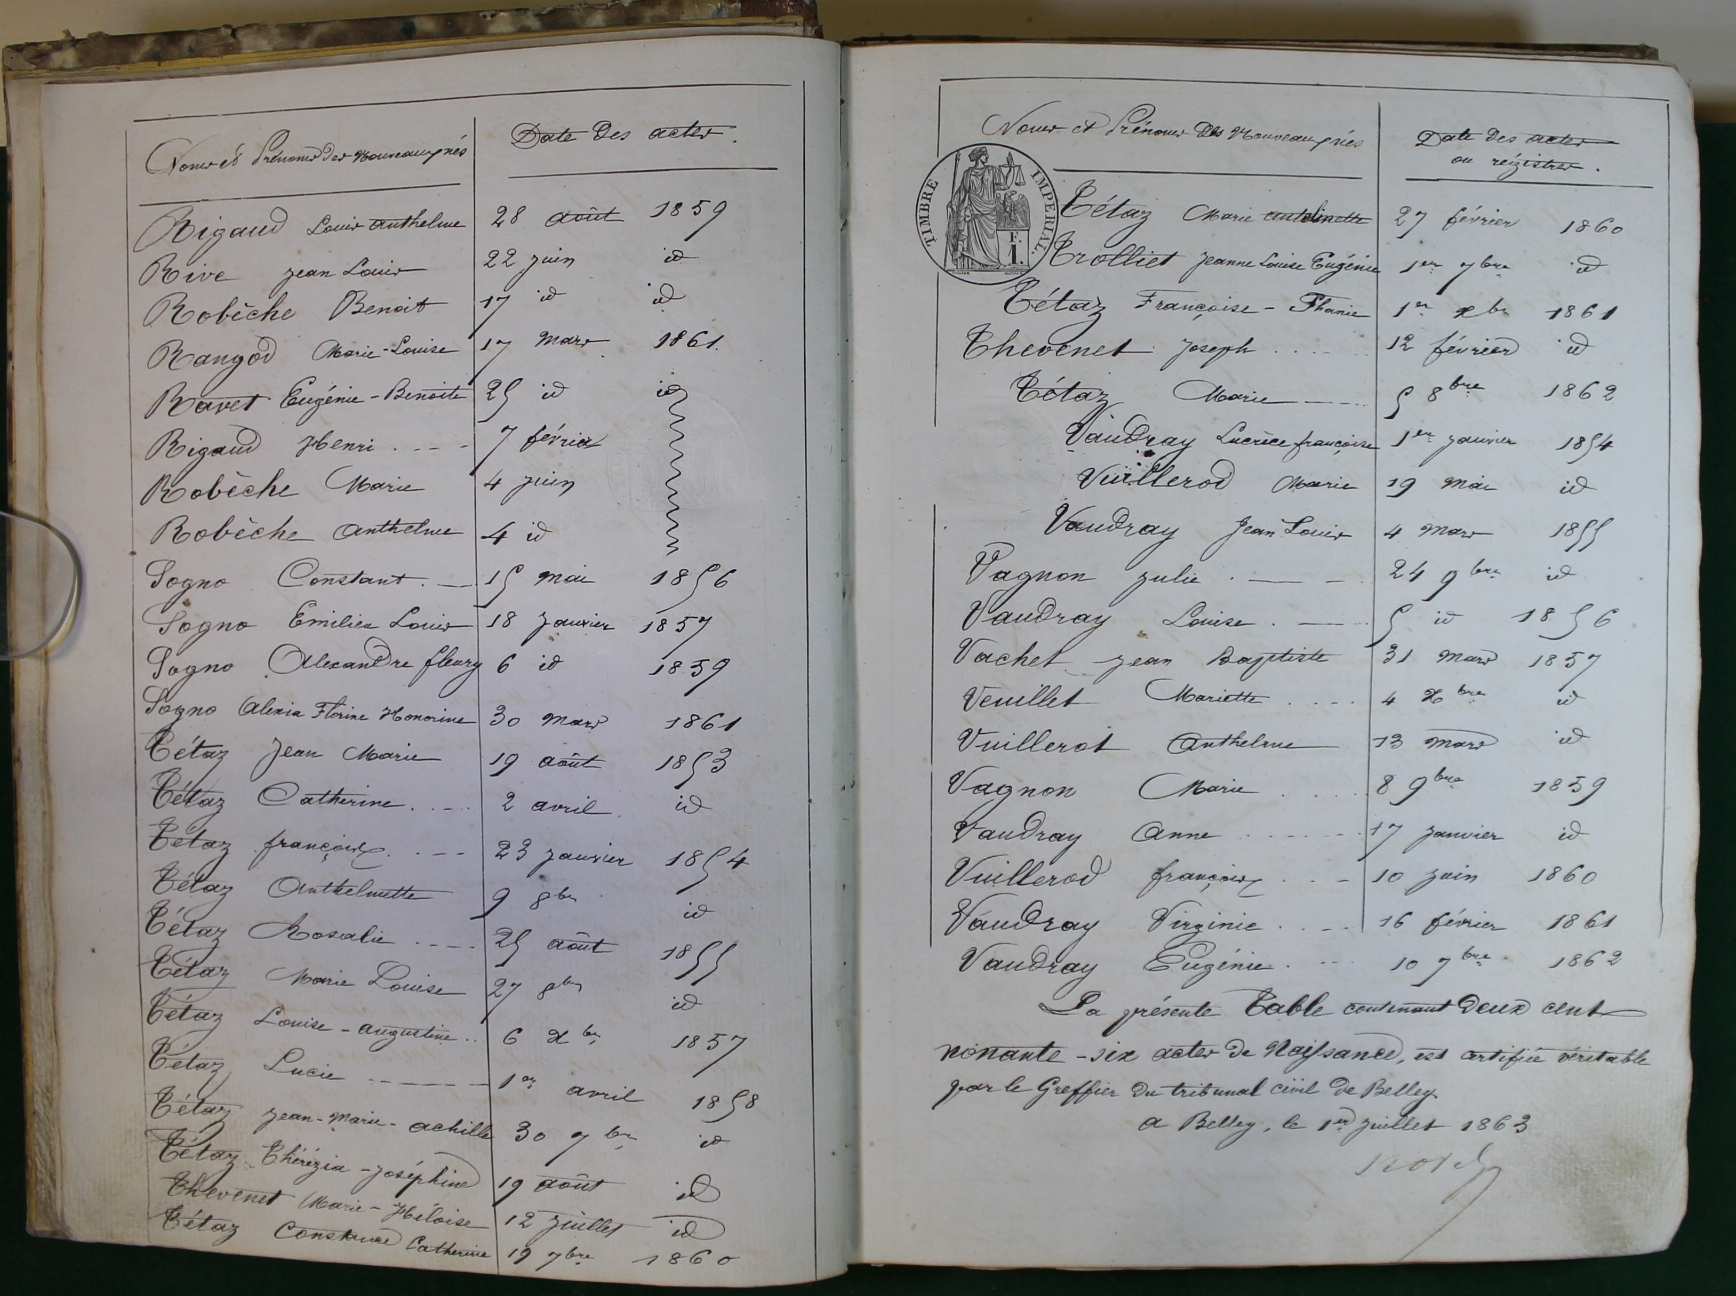 Noms et Prénoms des Nouveaux nés Date des actes.
Rigaud Louis Anthelme 28 août 1859
Rive Jean Louis 22 juin id
Robèche Benoit 17 id id
Rangod Marie-Louise 17 Mars 1861.
Ravet Eugénie-Benoite 25 id id
Rigaud Henri .... 7 février
Robèche Marie 4 juin
Robèche Anthelme 4 id
Sogno Constant. — 15 mai 1856
Sogno Emilien Louis 18 janvier 1857
Sogno Alexandre fleury 6 id 1859
Sogno Alexia Florine Honorine 30 mars 1861
Tétaz Jean Marie 19 août 1853
Tétaz Catherine.... 2 avril. id
Tétaz françoise.... 23 janvier 1854
Tétaz Anthelmette 9 8bre id
Tétaz Rosalie .... 25 août 1855
Tétaz Marie Louise 27 8bre id
Tétaz Louise-Augustine.. 6 Xbre 1857
Tétaz Lucie ------ 1er avril 1858
Tétaz Jean-Marie-achille 30 7bre id
Tétaz Thérézia-Joséphine 19 août id
Thevenet Marie-Héloise 12 juillet id
Tétaz Constance Catherine 19 7bre 1860
Noms et Prénoms des Nouveaux nés Date des actes
ou régistres.
TIMBRE IMPERIAL
F.
1.
Tétaz Marie 27 février 1860
Trolliet Jeanne Louise Eugénie 1er 7bre id
Tétaz Françoise-Fhanie 1er Xbre 1861
Thevenet Joseph .... 12 février id
Tétaz Marie ---- 5 8bre 1862
Vaudray Lucrèce françoise 1er janvier 1854
Vuillerod Marie 19 mai id
Vaudray Jean Louis 4 Mars 1855
Vagnon Julie . — - 24 9bre id
Vaudray Louise . —— 5 id 1856
Vachet Jean Baptiste 31 Mars 1857
Veuillet Mariette .... 4 Xbre id
Vuillerot Anthelme 13 mars id
Vagnon Marie .... 8 9bre 1859
Vaudray Anne ...... 17 janvier id
Vuillerod françois ... 10 juin 1860
Vaudray Virginie .... 16 février 1861
Vaudray Eugénie .... 10 7bre. 1862
La présente Table contenant Deux cent
nonante-six actes de Naissance, est certifiée véritable
par le Greffier du tribunal civil de Belley.
a Belley, le 1er juillet 1863